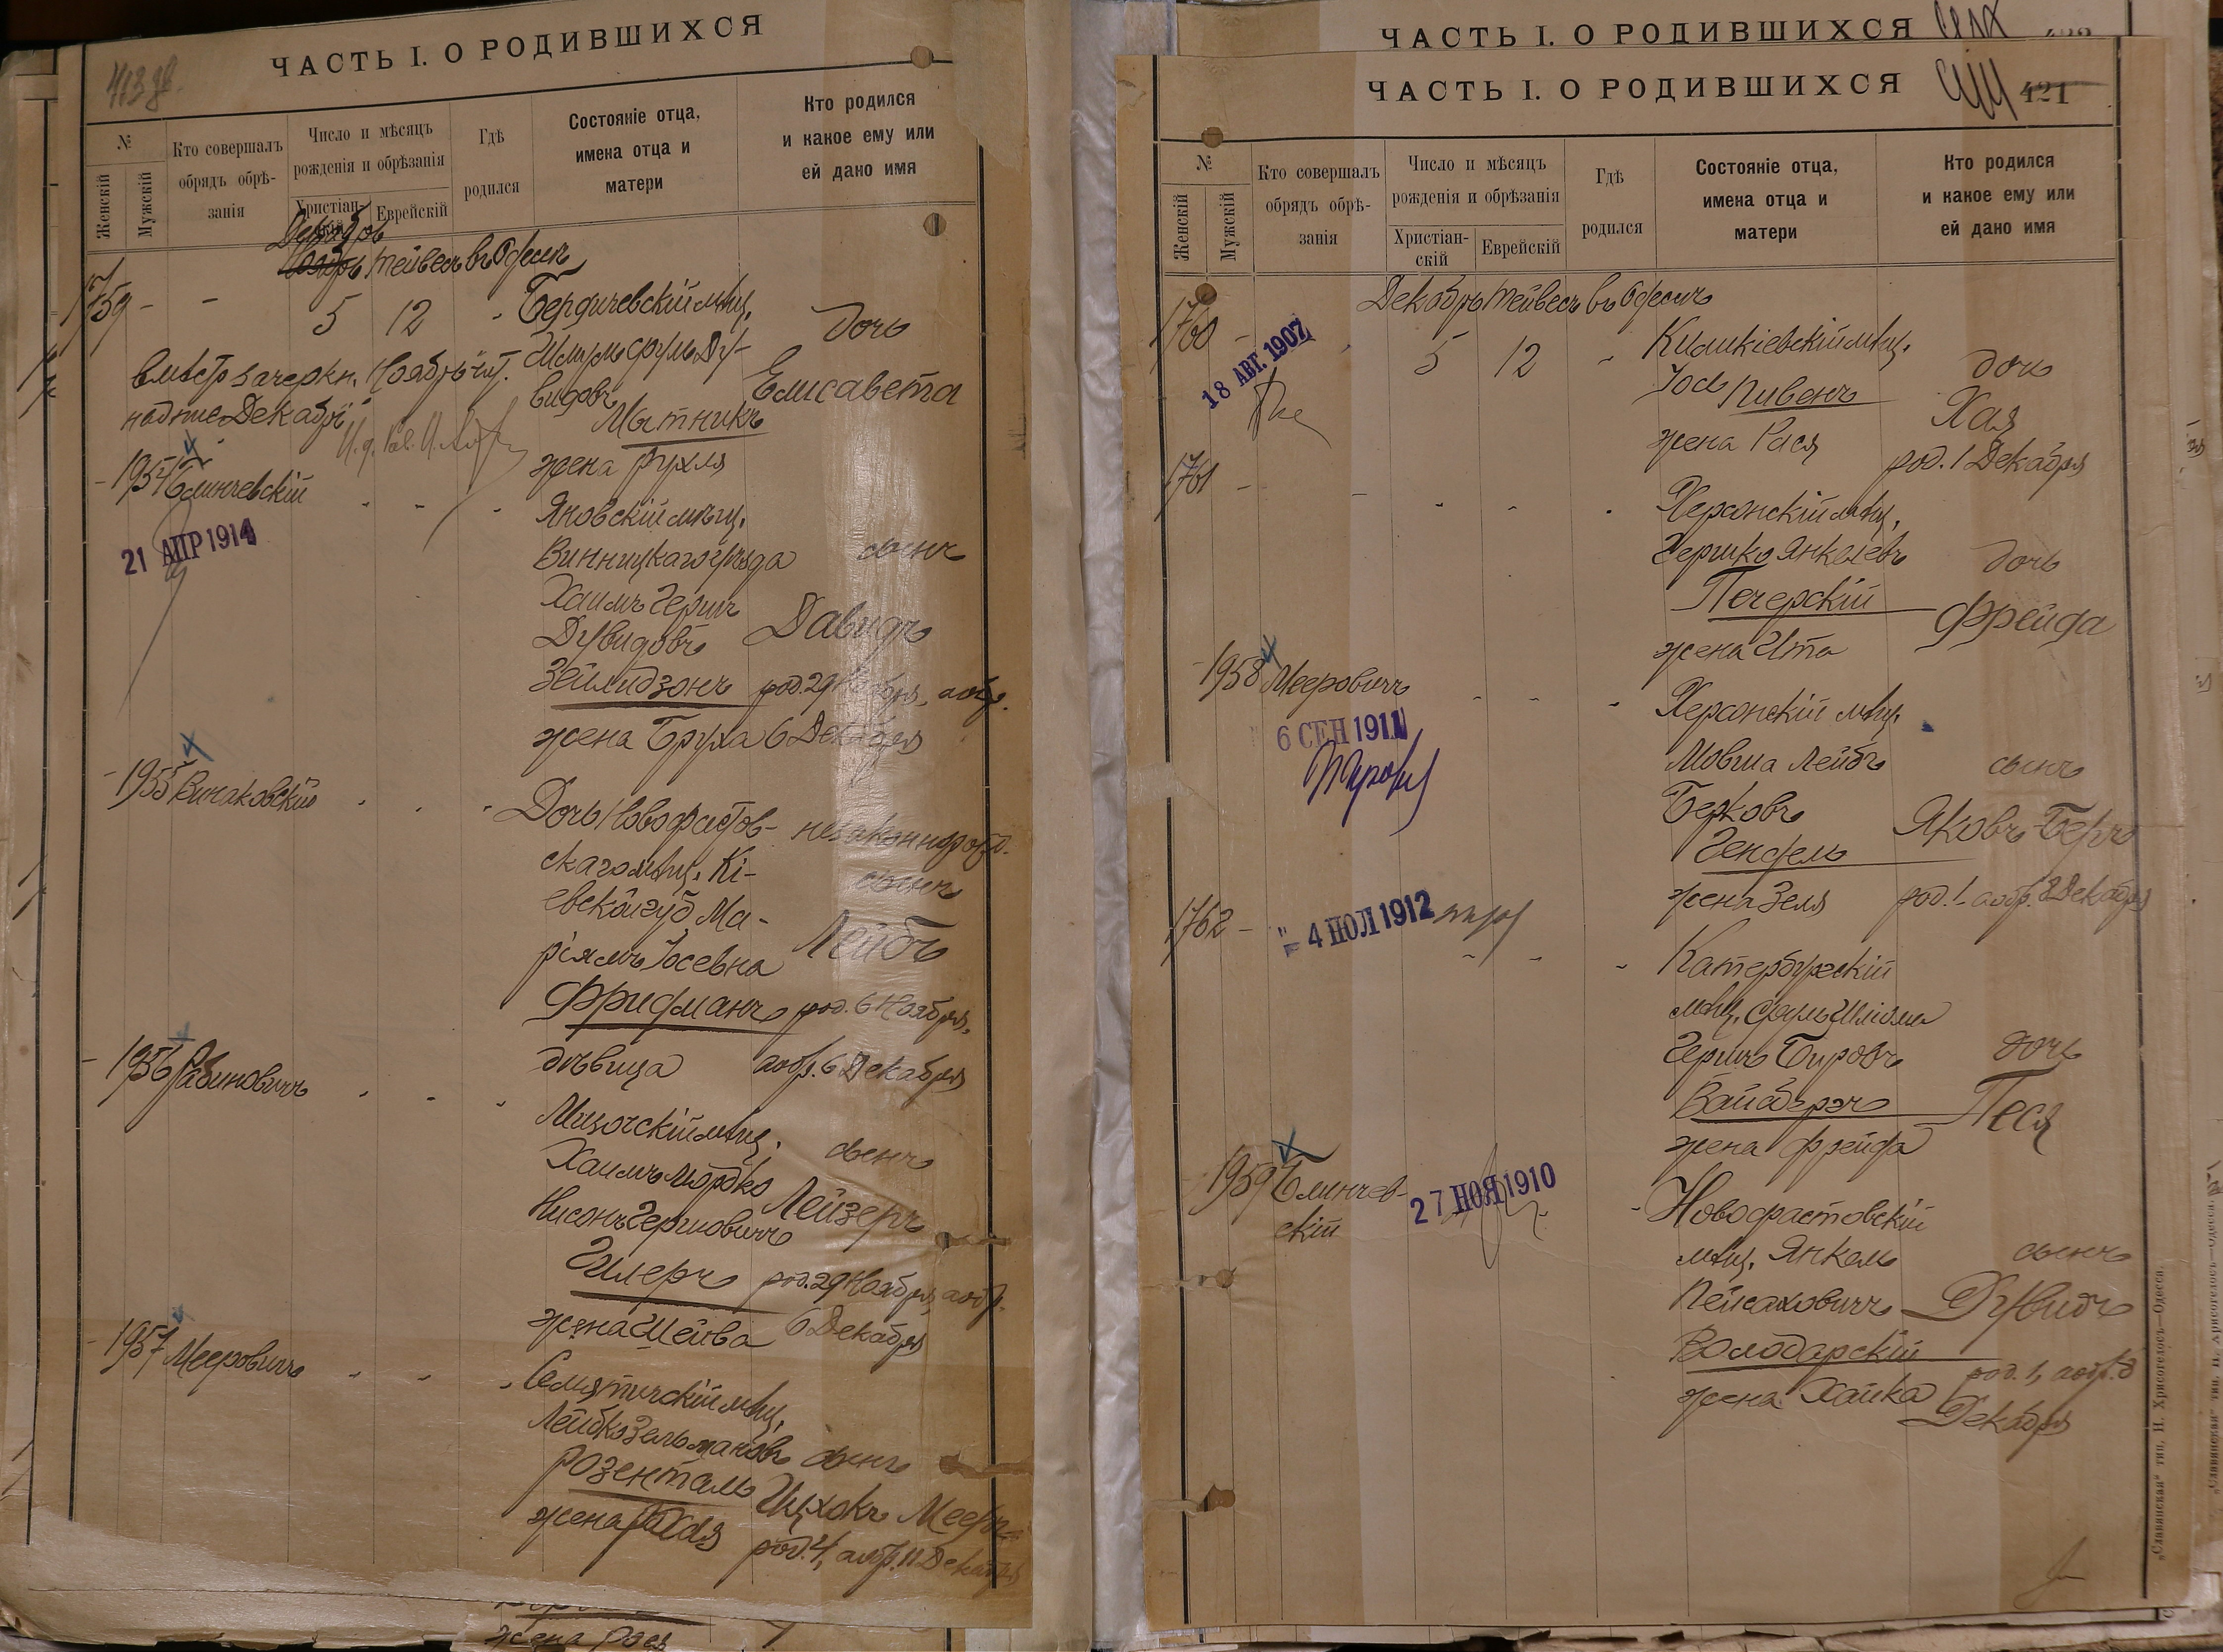 ЧАСТЬ I. О РОДИВШИХСЯ
№
Женскій
Мужскій
Кто совершалъ
обрядъ обрѣ-
занія
Число и мѣсяцъ
рожденія и обрѣзанія
Христіан-
Еврейскій
Гдѣ
родился
Состояніе отца,
имена отца и
матери
Кто родился
и какое ему или
ей дано имя
Ноябрь Тейвесъ въ Одессѣ
1759 - - 5 12 Бердичевскій мѣщ.
дочь
Елисавета
видовъ
Мытникъ
жена Рухля
вмѣсто зачеркн. Ноябрь чит.
надпис Декабрь
1954 Блинчевскій
21 АПР 1914
Яновскій мѣщ.
Винницкаго уѣзда
сынъ
Хаимъ Герш
Дувидовъ
Давидъ
Зейлидзонъ
род. 29 Ноября, а обр.
жена Бруха 6 Декабря
1955 Винаковскій
Дочь Новофастов-
незаконнорожд.
скаго мѣщ. Кі-
сынъ
евской губ Ма-
ріямъ Іосевна
Лейбъ
Фридманъ
род. 6 Ноября,
дѣвица
а обр. 6 Декабря
1956 Рабиновичъ
Мизочскій мѣщ.
сынъ
Хаимъ Мордко
Лейзеръ
Нисонъ Гершовичъ
Гилеръ
род. 29 Ноября, а обр.
жена Шейва 6 Декабря
1957 Мееровичъ
Семятичскій мѣщ.
Лейбко Зельмановъ сынъ
Розенталь
Ицхокъ Мееръ
род. 4, а обр. 11 Декабря
жена Рая
ЧАСТЬ I. О РОДИВШИХСЯ
ЧАСТЬ I. О РОДИВШИХСЯ
421
№
Женскій
Мужскій
Кто совершалъ
обрядъ обрѣ-
занія
Число и мѣсяцъ
рожденія и обрѣзанія
Христіан-
скій
Еврейскій
Гдѣ
родился
Состояніе отца,
имена отца и
матери
Кто родился
и какое ему или
ей дано имя
Декабрь Тейвесъ въ Одессѣ
1760 - 5 12
18 АВГ. 1907
дочь
Іось Пивень
Хая
жена Рася
род. 1 Декабря
1761 - -
Херсонскій мѣщ.
Гершко Янкелевъ
дочь
Печерскій
Фрейда
жена Ита
1958 Мееровичъ
6 СЕН 1911
Херсонскій мѣщ.
Мовша Лейбъ
сынъ
Берковъ
Яковъ-Беръ
Гендель
жена Зеля
род. 1 а обр. 8 Декабря
1762 -
4 ІЮЛ 1912
Катербургскій
мѣщ. Сруль Шліома
Гершъ Бировъ
дочь
Вайсбергъ
Песя
жена Фрейда
1959 Блинчев-
скій
27 НОЯ 1910
Новофастовскій
мѣщ. Янкель
сынъ
Пейсаховичъ
Дувидъ
Володарскій
род. 1, а обр. 8
жена Хайка
Декабря
„Славянская" тип. Н. Хрисогелосъ—Одесса.
жена Рася